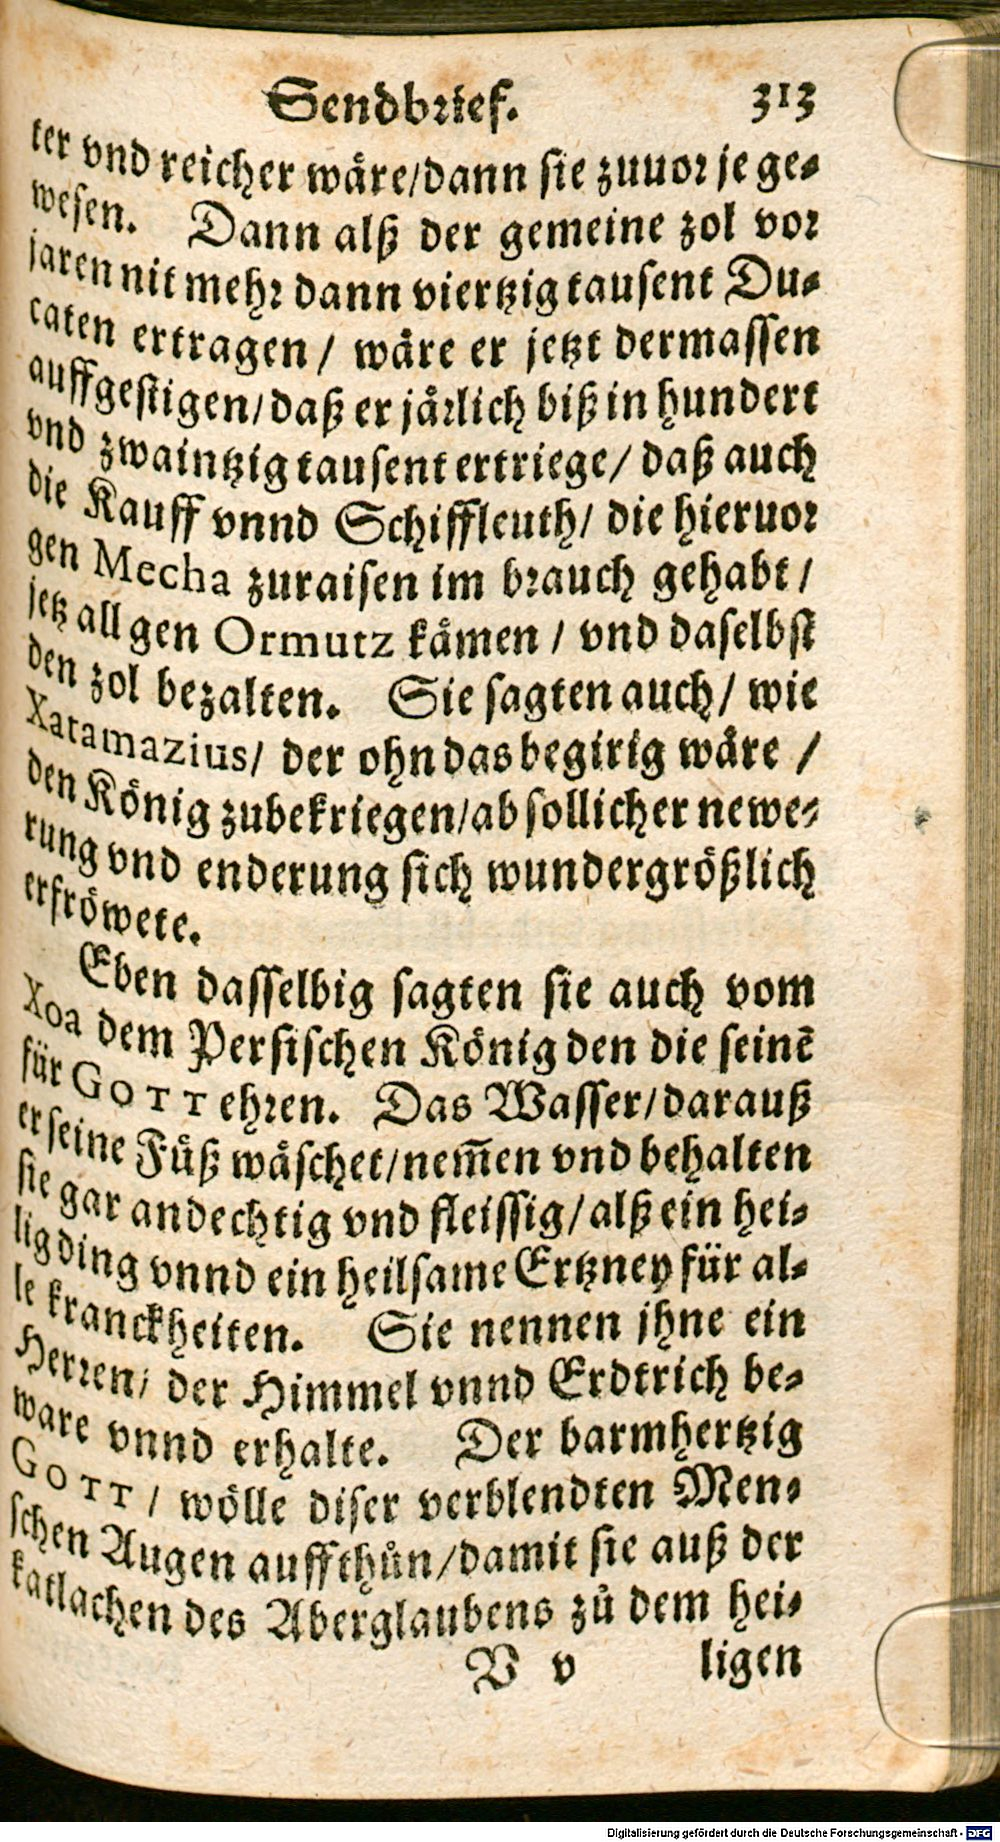 Sendbrief. 313
ter vnd reicher wäre/dann sie zuuor je ge-
wesen. Dann alß der gemeine zol vor
jaren nit mehr dann viertzig tausent Du-
caten ertragen / wäre er jetzt dermassen
auffgestigen/daß er järlich biß in hundert
vnd zwaintzig tausent ertriege/ daß auch
die Kauff vnnd Schiffleuth/ die hieruor
gen Mecha zuraisen im brauch gehabt /
jetz all gen Ormutz kämen / vnd daselbst
den zol bezalten. Sie sagten auch/ wie
Xatamazius/ der ohn das begirig wäre /
den König zubekriegen/ab sollicher newe-
rung vnd enderung sich wundergrößlich
erfröwete.
Eben dasselbig sagten sie auch vom
Xoa dem Persischen König den die seinē
für GOTT ehren. Das Wasser/darauß
er seine Füß wäschet/nem̄en vnd behalten
sie gar andechtig vnd fleissig/alß ein hei-
lig ding vnnd ein heilsame Ertzney für al-
le kranckheiten. Sie nennen jhne ein
Herren/ der Himmel vnnd Erdtrich be-
ware vnnd erhalte. Der barmhertzig
GOTT / wölle diser verblendten Men-
schen Augen auffthůn/damit sie auß der
katlachen des Aberglaubens zů dem hei-
V v ligen
Digitalisierung gefördert durch die Deutsche Forschungsgemeinschaft - DFG